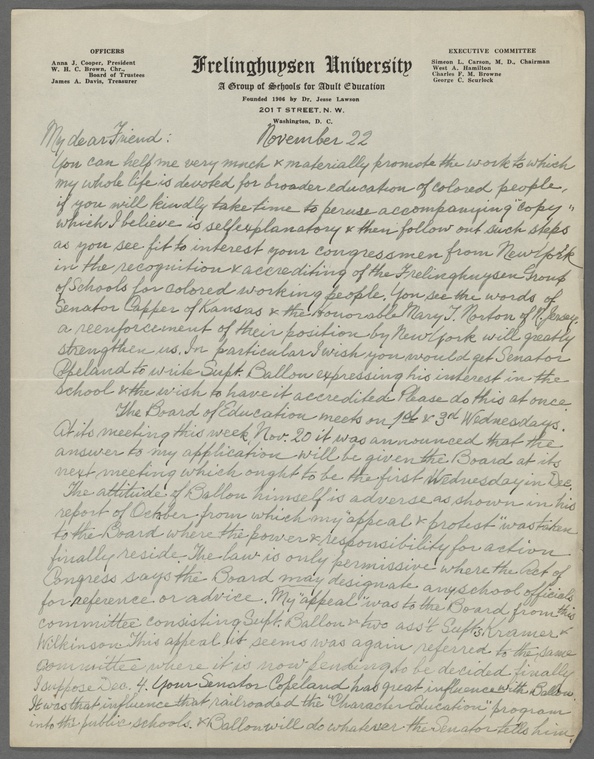 OFFICERS
Anna J. Cooper, President
W. H. C. Brown, Chr.,
Board of Trustees
James A. Davis, Treasurer
Frelinghuysen University
A Group of Schools for Adult Education
Founded 1906 by Dr. Jesse Lawson
201 T STREET, N. W.
Washington, D. C.
EXECUTIVE COMMITTEE
Simeon L. Carson, M. D., Chairman
West A. Hamilton
Charles F. M. Browne
George C. Scurlock
My dear Friend: November 22
You can help me very much & materially promote the work to which
my whole life is devoted for broader education of colored people,
if you will kindly take time to peruse accompanying "copy"
which I believe is self explanatory & then follow out such steps
as you see fit to interest your congressmen from New York
in the recognition & accrediting of the Frelinghuysen Group
of Schools for colored working people. You see the words of
Senator Capper of Kansas & the Honorable Mary T. Norton of N. Jersey.
a reenforcement of their position by New York will greatly
strengthen us. In particular I wish you would get Senator
Copeland to write Supt. Ballou expressing his interest in the
school & the wish to have it accredited. Please do this at once
The Board of Education meets on 1st & 3rd Wednesdays.
At its meeting this week, Nov. 20 it was announced that the
answer to my application will be given the Board at its
next meeting which ought to be the first Wednesday in Dec.
The attitude of Ballou himself is adverse as shown in his
report of October from which my "appeal & protest" was taken
to the Board where the power & responsibility for action
finally reside. The law is only permissive where the Act of
Congress says the Board may designate any school officials
for reference or advice. My "appeal" was to the Board from this
committee consisting Supt. Ballou & two ass't Supts Kramer &
Wilkinson. This appeal, it seems was again referred to the same
committee where it is now pending to be decided finally
I suppose Dec. 4. Your Senator Copeland has great influence with Ballou
It was that influence that railroaded the "Character Education" program
into the public schools. & Ballou will do whatever the Senator tells him.